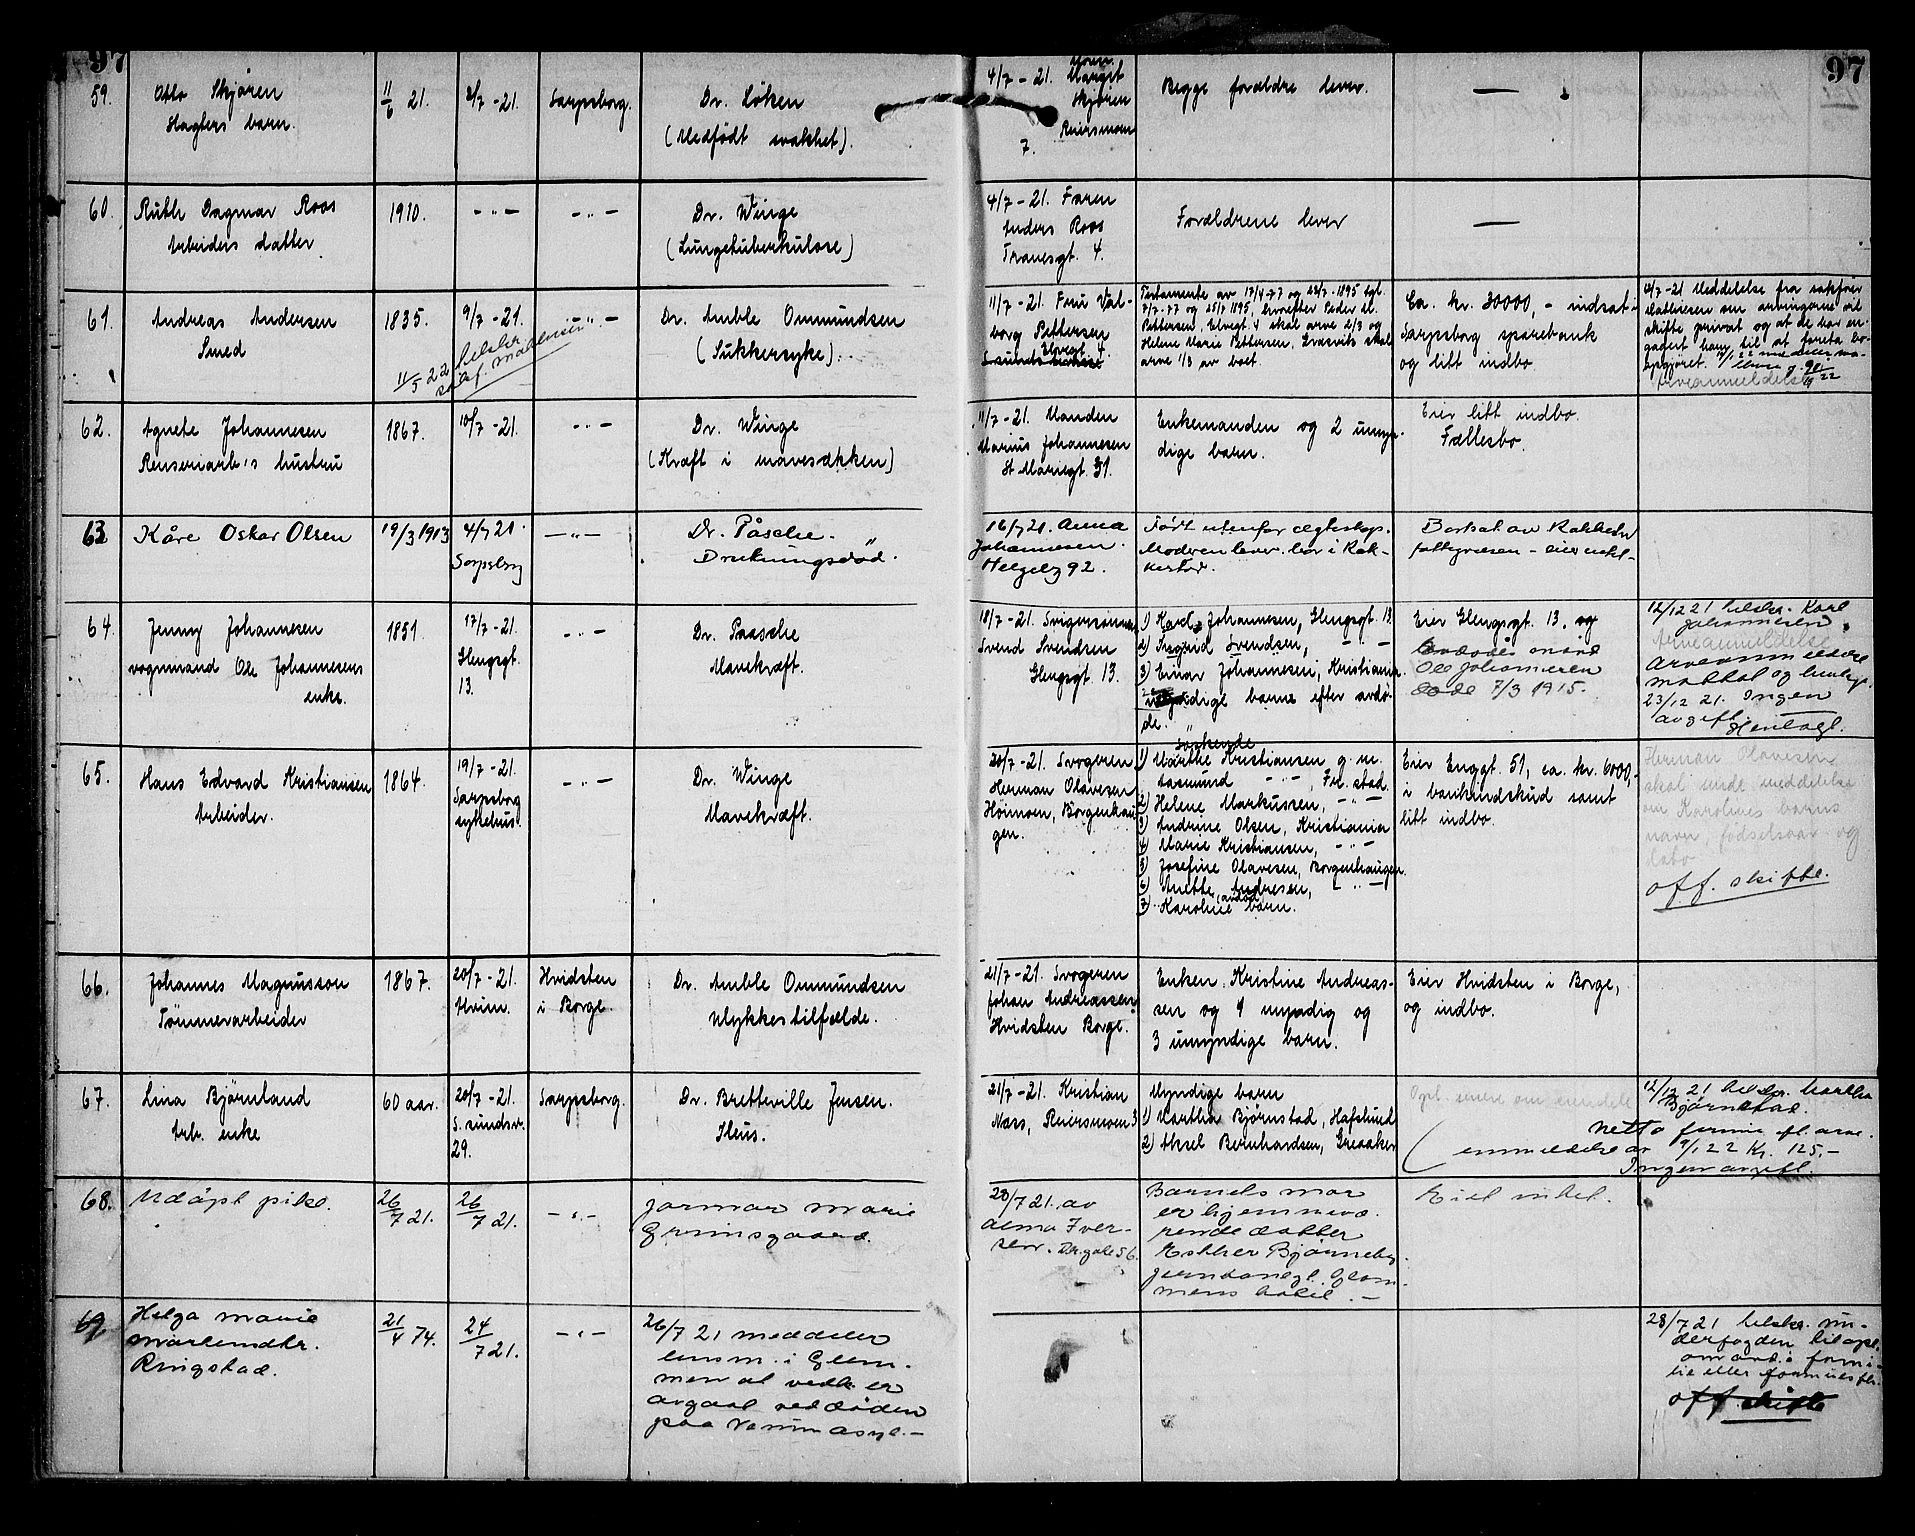 97
97
59.
Otto Skjøren
Haglers barn.
11/6 21.
2/7 - 21.
Sarpsborg.
Dr. Løken
(Medfødt svakhet).
4/7 - 21.
Margit
Skjøren
7.
Begge forældre lever.
—
60.
Ruth Dagmar Roos
Arbeiders datter.
1910.
- " -
- " -
Dr. Winge
(Lungetuberkulose)
4/7 - 21. Faren
Anders Roos
Tranesgt. 4.
Forældrene lever
—
61.
Andreas Andersen
Smed
1835.
9/7 - 21.
- " -
11/5 22 tilskr.
sakf. Mathiesen
Dr. Amble Ommundsen
(Sukkersyke).
11/7 - 21. Fru Val-
borg Pettersen
Elvegt. 4.
Testamente av 17/4-77 og 23/7-1895 tgl.
7/7-77 og 25/7 1895, hvorefter Peder M.
Pettersen, Elvegt. 4 skal arve 2/3 og
Helene Marie Pettersen, skal
arve 1/3 av boet.
Ca. kr. 30000,- indsat i
Sarpsborg sparebank
og litt indbo.
Meddelelse fra sakfører
Mathiesen om arvingerne vil
skifte privat og at de har en-
gagert ham til at foreta bo-
opgjøret.
Arveanmeldelse
62.
Agnete Johannesen
Renseriarb.s hustru
1867.
10/7 - 21.
- " -
Dr. Winge
(Kræft i mavesækken)
11/7 - 21. Manden
Marius Johannesen
St Mariegt. 31.
Enkemanden og 2 umyn-
dige barn.
Eier litt indbo.
Fællesbo.
63
Kåre Oskar Olsen
19/3 1913
4/7 21.
Sarpsborg
- " -
Dr. Påsche.
Drukningsdød.
16/7 21. Anna
Johannesen.
Helgeby 92.
Født utenfor egteskap.
Moderen lever. bor i Rak-
kestad.
Bortsat av Rakkestad
fattigvæsen - eier intet-
64.
Jenny Johannesen
vognmand Ole Johannesens
enke.
1851.
17/7 - 21.
Glengsgt.
13.
- " -
Dr. Paasche
Mavekræft.
18/7 - 21. Svigersønnen
Svend Svendsen
Glengsgt. 13.
1) Karl Johannesen, Glengsgt. 13
2) Ingrid Svendsen, - " -
3) Einar Johannesen, Kristiania.
barn efter avdø-
de.
Eier Glengsgt. 13. og
avdødes mand
Ole Johannesen
døde 7/3 1915.
12/12 21 tilskr. Karl
Johannesen.
Arveanmeldelse
Arveanmeldelse
mottat og henlagt
23/12 21. Ingen
avgift.
Henlagt.
65.
Hans Edvard Kristiansen
Arbeider.
1864.
19/7 - 21.
Sarpsborg
sykehus.
- " -
Dr. Winge
Mavekræft.
20/7 - 21. Svogeren
Herman Olavesen
Borgenhau-
gen.
Søskende
1) Marthe Kristiansen g. m.
Aasmund - " -, Fr.stad.
2) Helene Markussen, - " -
3) Andrine Olsen, Kristiania
4) Marie Kristiansen, - " -
5) Josefine Olavesen, Borgenhaugen.
6) Anette Andresen, - " -
7) Karoline, avdød, barn.
Eier Enggt. 51, ca. kr. 6000,-
i bankindskud samt
litt indbo.
Herman Olavesen
skal sende meddelelse
om Karolines barns
navn, fødselsaar og
bo
off. skifte.
66.
Johannes Magnusson
Tømmerarbeider
1867.
20/7 - 21.
Hvidsten
i Borge.
Dr. Amble Ommundsen
Ulykkestilfælde.
21/7 - 21. Svogeren
Johan Andreassen
Hvidsten Borge.
Enken Kristine Andreas-
sen og 4 myndig og
3 umyndige barn.
Eier Hvidsten i Borge,
og indbo.
67.
Lina Bjørnland
Arb. enke
60 aar.
20/7 - 21.
S. sundsv.
29.
Sarpsborg.
Dr. Bretteville Jensen.
Ileus.
21/7 - 21. Kristian
Næss, Reiersmoen 3
Myndige barn
1) Martha Bjørnstad, Hafslund
2) Aksel Bernhardsen, Greaaker
12/12 21 tilskr. Martha
Bjørnstad.
netto formue efl. arve-
anmeldelse av 9/1 22 Kr. 125.-
Ingen avgift.
68.
Udøpt pike.
26/7 21.
26/7 21.
- " -
Jormor Marie
Grimsgaard.
28/7 21. av
Alma Iver-
sen.
Barnets mor
er hjemmevæ-
rende datter
Esther Bjørneby.
Glom-
mens hotel. -
Eiet intet.
69
Helga Marie
Martinsdtr.
Ringstad.
21/4 74.
24/7 21.
- " -
26/7 21 meddeler
lensm. i Glem-
men at vedk. er
avgaat ved døden
paa Varna asyl.-
28/7 21 tilskr. un-
derfogden til opl.
om avd.s fami-
lie eller formuesfh.
off. skifte